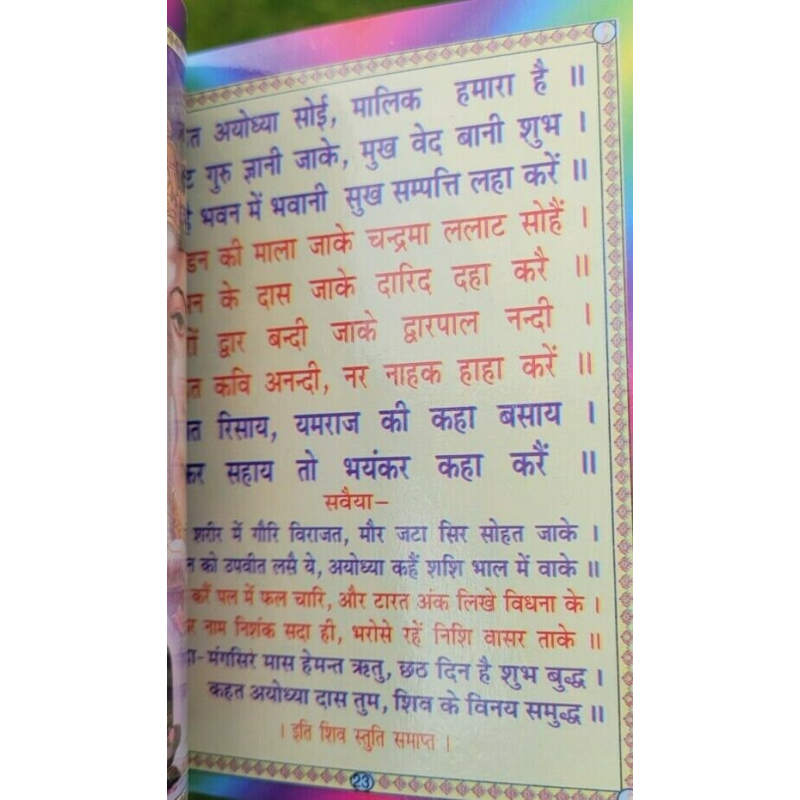 अयोध्या सोई, मालिक हमारा है ॥
गुरु ज्ञानी जाके, मुख वेद बानी शुभ ।
भवन में भवानी सुख सम्पत्ति लहा करें ॥
की माला जाके चन्द्रमा ललाट सोहैं ।
के दास जाके दारिद दहा करै ॥
द्वार बन्दी जाके द्वारपाल नन्दी ।
कवि अनन्दी, नर नाहक हाहा करें ॥
रिसाय, यमराज की कहा बसाय ।
सहाय तो भयंकर कहा करैं ॥
सवैया–
शरीर में गौरि विराजत, मौर जटा सिर सोहत जाके ।
को उपवीत लसै ये, अयोध्या कहैं शशि भाल में वाके ॥
करैं पल में फल चारि, और टारत अंक लिखे विधना के ।
नाम निशंक सदा ही, भरोसे रहें निशि वासर ताके ॥
मंगसिर मास हेमन्त ऋतु, छठ दिन है शुभ बुद्ध ।
कहत अयोध्या दास तुम, शिव के विनय समुद्ध ॥
। इति शिव स्तुति समाप्त ।
23